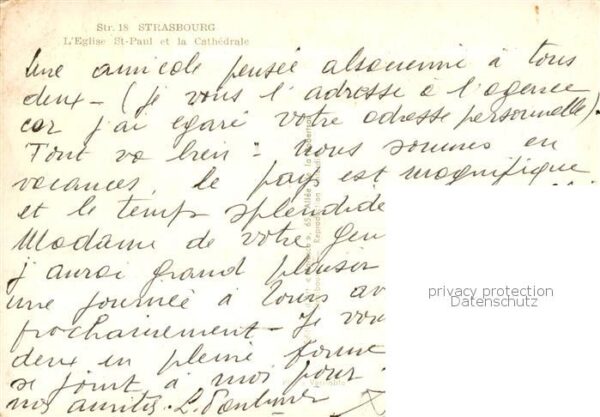 Str. 18 STRASBOURG
L'Eglise St-Paul et la Cathédrale
Une amicale pensée alsacienne à tous
deux - (je vous l'adresse à l'agence
car j'ai égaré votre adresse personnelle).
Tout va bien - nous sommes en
vacances, le pays est magnifique ...
et le temps splendide
Madame de votre gen
j'aurai grand plaisir
une journée à Tours av
prochainement - Je vou
deux en pleine forme
se joint à moi pour
nos amitiés.
privacy protection
Datenschutz